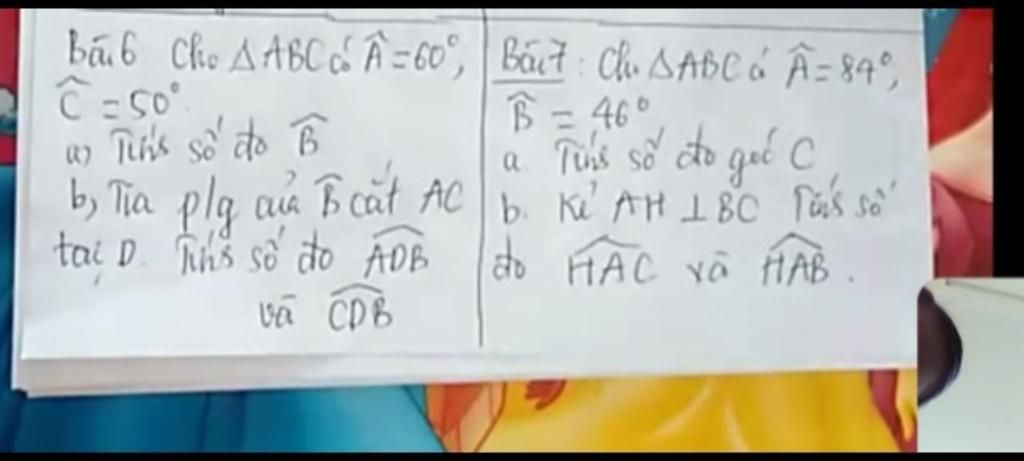 Bài 6 Cho △ABC có Â = 60°,
Ĉ = 50°
a) Tính số đo B̂
b, Tia p/g của B̂ cắt AC
tại D. Tính số đo \widehat{ADB}
và \widehat{CDB}
Bài 7 : Cho △ABC có Â = 84°,
B̂ = 46°
a. Tính số đo góc C
b. Kẻ AH ⊥ BC Tính số
đo \widehat{HAC} và \widehat{HAB}.